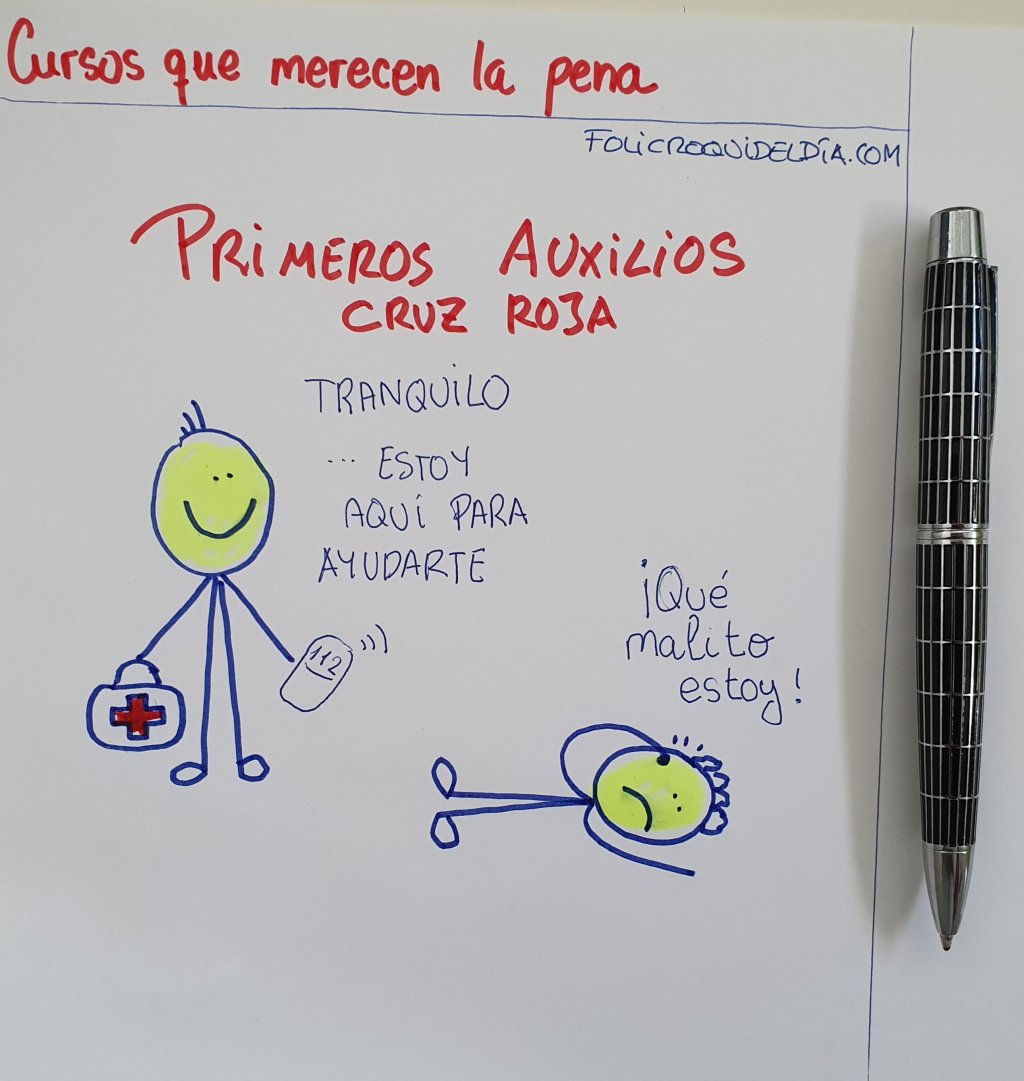 Cursos que merecen la pena
FOLICROQUIDELDÍA.COM
PRIMEROS AUXILIOS
CRUZ ROJA
TRANQUILO
... ESTOY
AQUÍ PARA
AYUDARTE
112
¡Qué
malito
estoy!